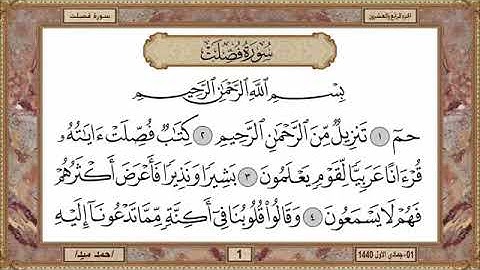 الجزء الرابع والعشرون
سورة فصلت
سُورَةُ فُصِّلَتْ
بِسْمِ اللَّهِ الرَّحْمَٰنِ الرَّحِيمِ
حمٓ ١ تَنزِيلٌ مِّنَ الرَّحْمَٰنِ الرَّحِيمِ ٢ كِتَٰبٌ فُصِّلَتْ ءَايَٰتُهُۥ
قُرْءَانًا عَرَبِيًّا لِّقَوْمٍ يَعْلَمُونَ ٣ بَشِيرًا وَنَذِيرًا فَأَعْرَضَ أَكْثَرُهُمْ
فَهُمْ لَا يَسْمَعُونَ ٤ وَقَالُوا۟ قُلُوبُنَا فِىٓ أَكِنَّةٍ مِّمَّا تَدْعُونَآ إِلَيْهِ
01- جمادى الاول 1440
1
/احمد ميد/